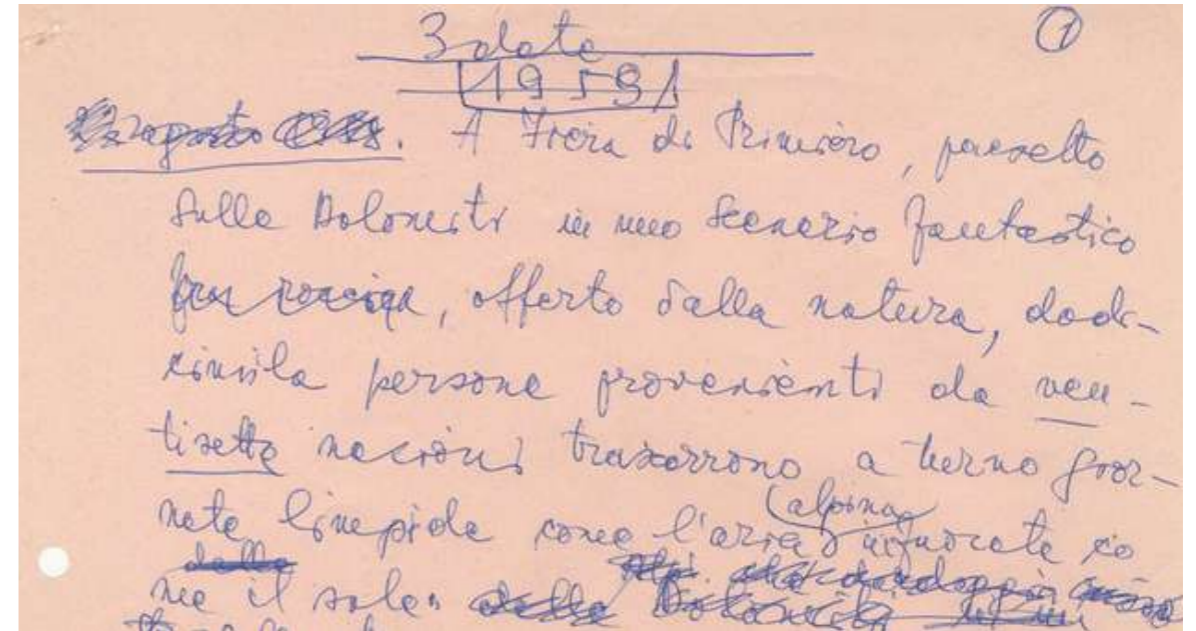 3 date ①
1959
agosto. A Fiera di Primiero, paesetto
sulle Dolomiti in uno scenario fantastico
offerto dalla natura, dodi-
cimila persone provenienti da ven-
tisette nazioni trascorrono a turno gior-
alpina
nate limpide come l'aria infuocate co
dalle
me il sole. delle Dolomiti